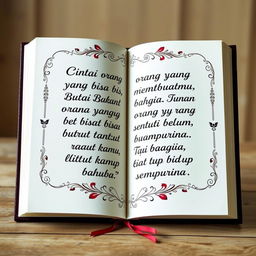 Cintai orang
yang bisa bis,
Butai Bukant
orana yangig
bet bisat bisat
butrut tantut
raaut kamu,
llittut kamup
bahuba."
orang yaung
memtbuatmu,
bahgia. Tunan
orang yy rang
sentuti belum,
buampurina..
Tqui baagiia,
tiat tup bidup
sempurina.